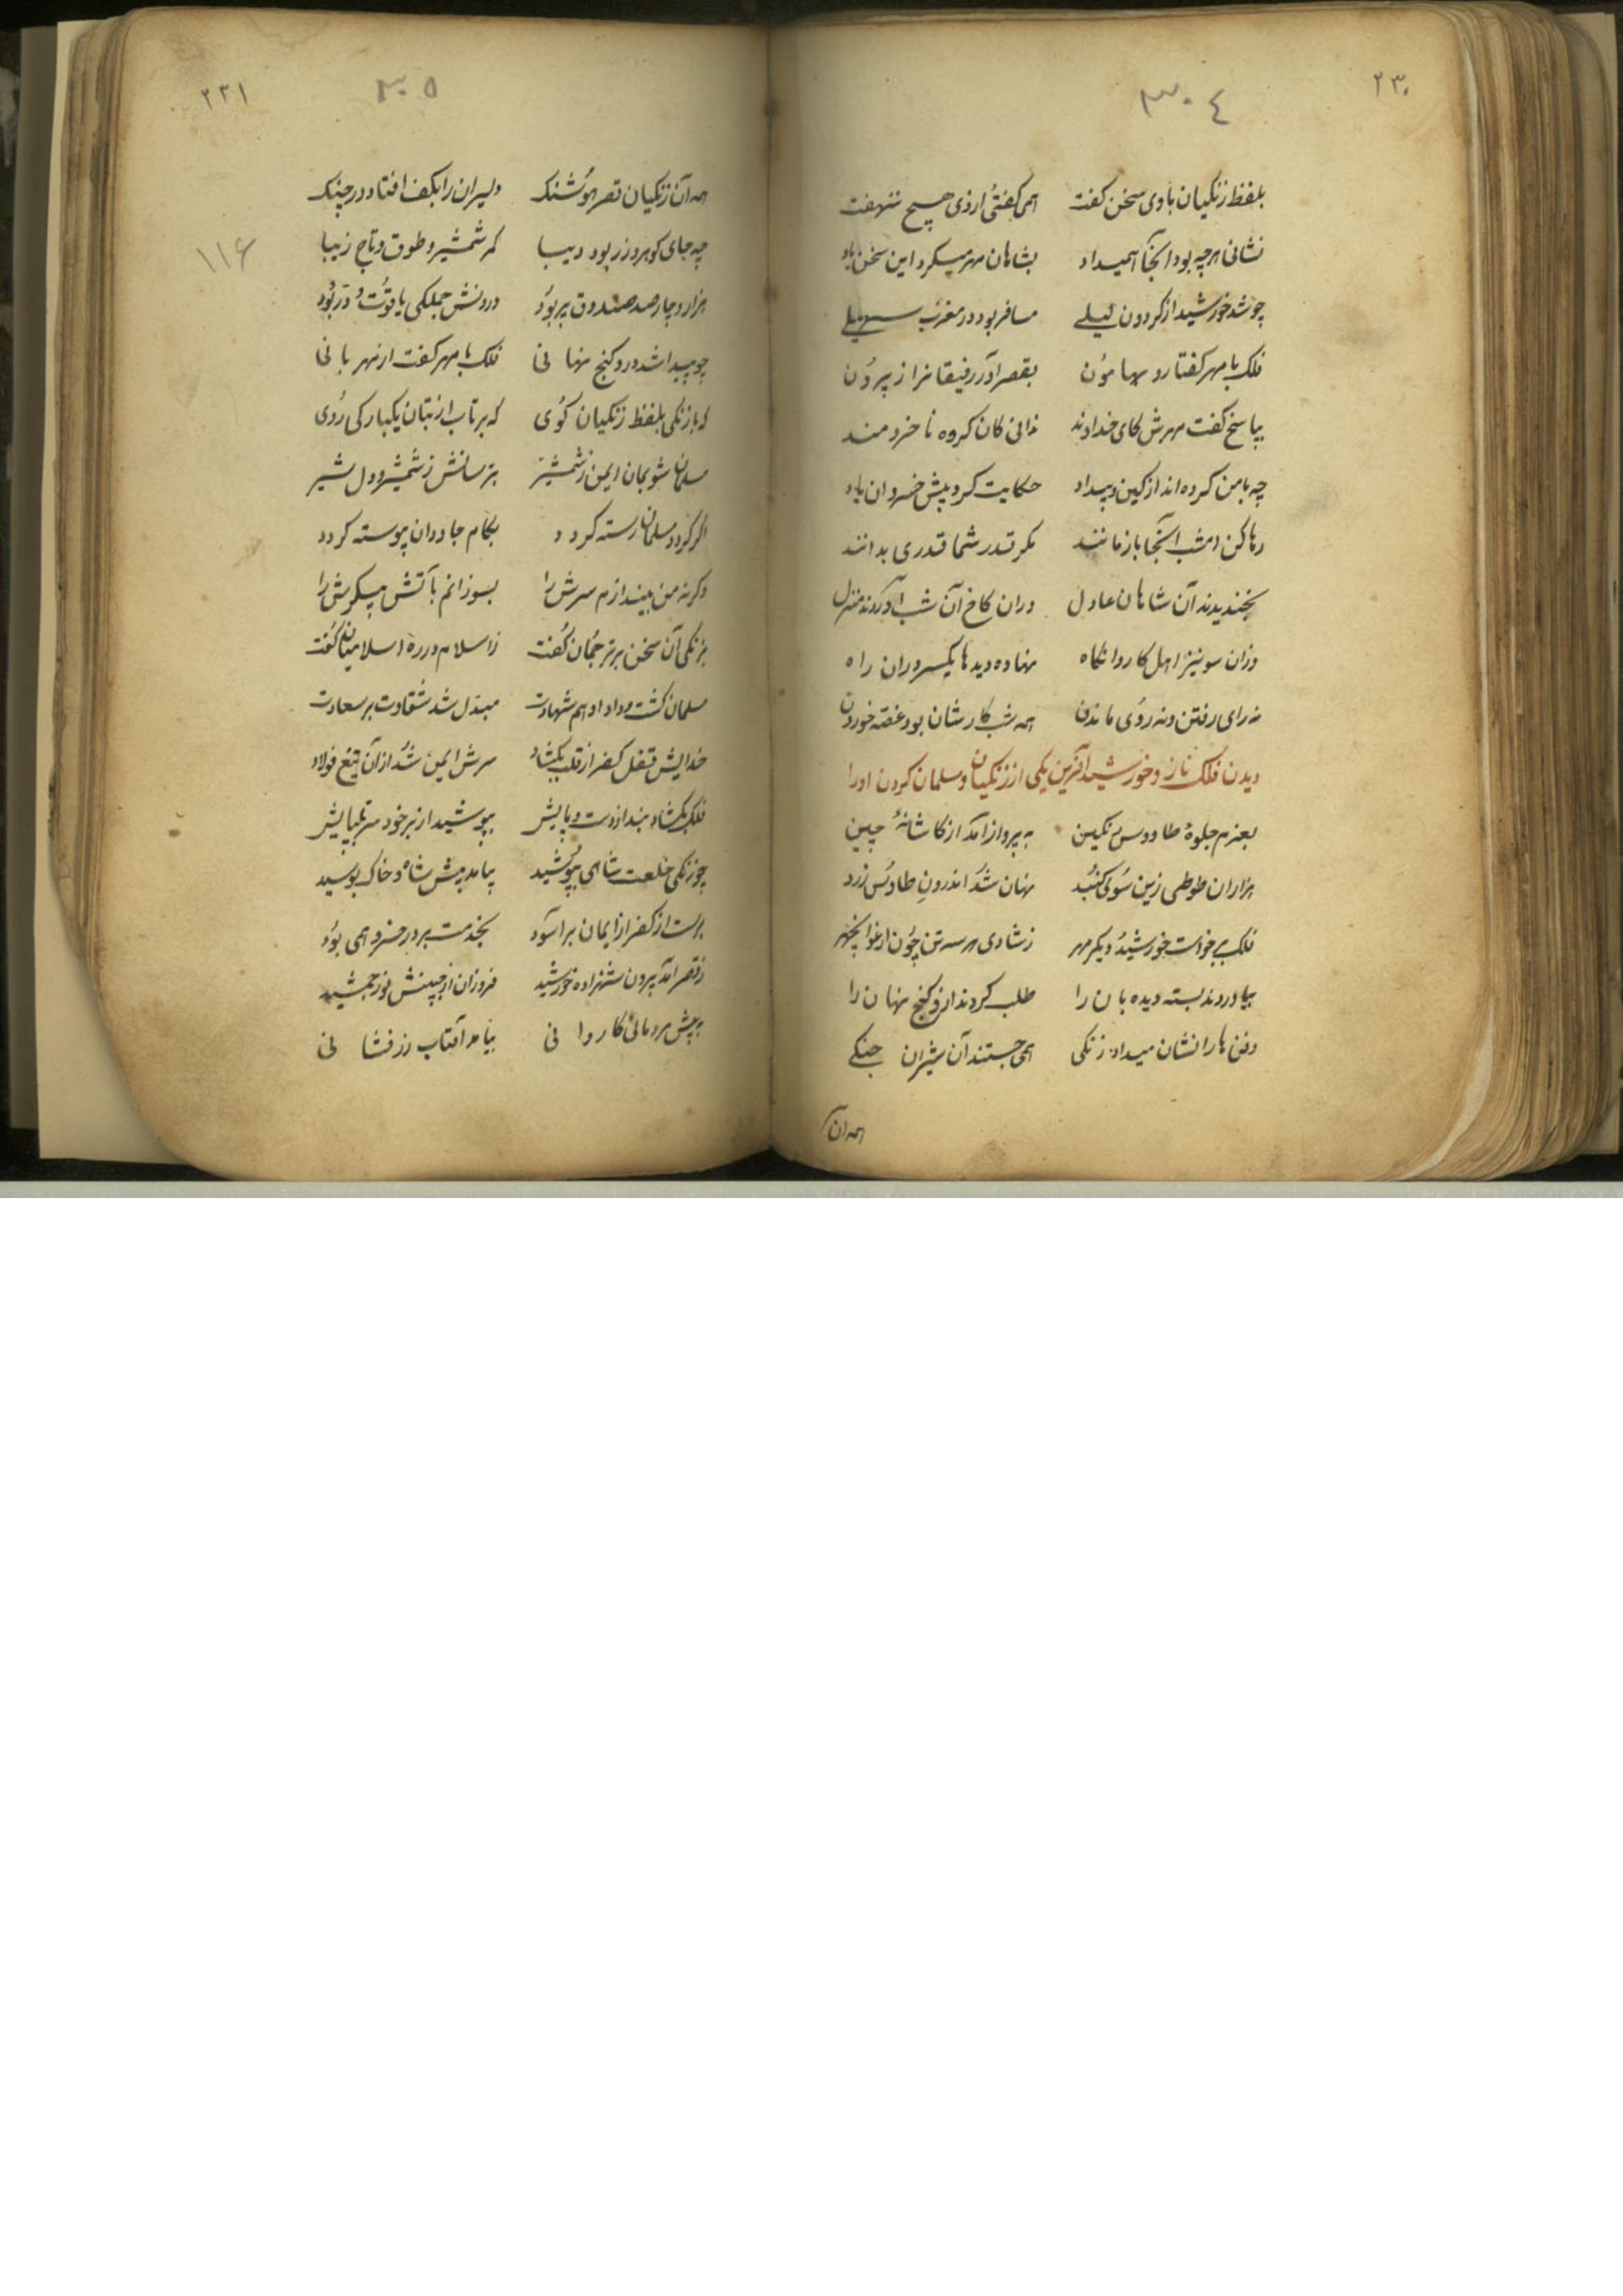 ۲۳۰
۳۰۴
بلفظ زنکیان باوی سخن کفت همی کفتی ازوی هیچ ننهفت
نشانی هرچه بود آنجا همیداد بشاهان مهر میکرد این سخن یاد
چو شد خورشید از کردون لیلے مسافر بود در مغرب سهیلے
فلک با مهر کفتا رو بهامون بقصر آور رفیقانرا ز بیرون
بپاسخ کفت مهرش کای خداوند ندانی کان کروه نا خردمند
چه بامن کرده اند از کین و بیداد حکایت کرد پیش خسروان یاد
رها کن امشب آنجا باز مانند مکر قدر شما قدری بدانند
بخندیدند آن شاهان عادل دران کاخ آن شب آوردند منزل
وزان سو نیز اهل کاروانکاه نهاده دیدها یکسر وران راه
نه رای رفتن و نه روی ماندن همه شب کارشان بود غصه خوردن
دیدن فلک ناز و خورشید آفرین یکی از زنکیان و مسلمان کردن اورا
بعزم جلوهٔ طاووس نکین به پرواز آمد از کاشانهٔ چین
هزاران طوطی زین سوی کنبد نهان شد اندرون طاوس زرد
فلک برخواست خورشید و دیکر مهر ز شادی هر سه تن چون ارغوان چهر
بیاوردند بسته دیده بان را طلب کردند ازو کنج نهان را
دفن هارا نشان میداد زنکی همی جستند آن شیران جنکے
همه آن
۲۳۱
۳۰۵
۱۱۶
همه آن زنکیان قصر هوشنک دلیران را بکف افتاد در چنک
چه جای کوهر و زر بود دیبا کمر شمشیر و طوق و تاج زیبا
هزار و چار صد صندوق پر بود درونش جملکی یاقوت و در بود
چو پیدا شد درو کنج نهانی فلک با مهر کفت از مهربانی
که با زنکی بلفظ زنکیان کوی که برتاب از بتان یکبارکی روی
مسلمان شو بمان ایمن ز شمشیر بترسانش ز شمشیر و دل شیر
اکر کردد مسلمان رسته کردد بکام جاودان پیوسته کردد
وکرنه من بیندازم سرش را بسوزانم بآتش پیکرش را
بزنکی آن سخن بر ترجمان کفت ز اسلام و ره اسلامیان کفت
مسلمان کشت و داد او هم شهادت مبدل شد شقاوت بر سعادت
خدایش قفل کفر از قلب بکشاد سرش ایمن شد از آن تیغ فولاد
فلک بکشاد بند از دست و پایش بپوشید از بر خود سر بپایش
چو زنکی خلعت شاهی بپوشید بیامد پیش شاه و خاک بوسید
برست از کفر از ایمان براسود بخدمت بر در خسرو همی بود
ز قصر آمد بیرون شهزاده خورشید فروزان از جبینش نور جمشید
به پیش مردمان کاروانی بیامد آفتاب زرفشانی